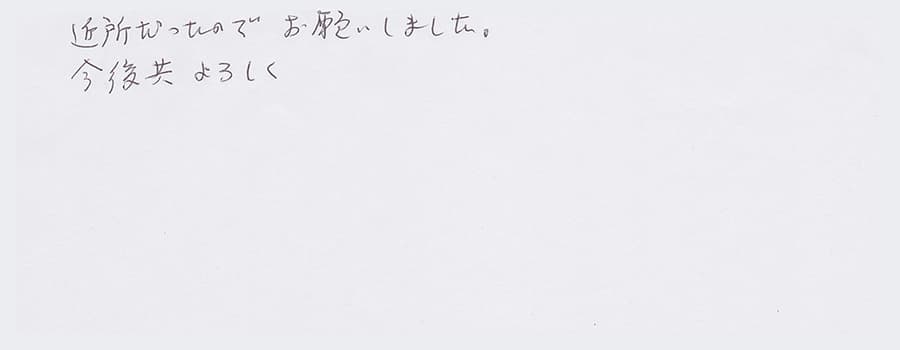 近所だったのでお願いしました。
今後共よろしく